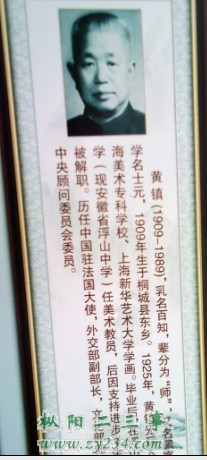 黄镇(1909-1989),乳名百知,辈分为"师",
学名士元,1909年生于桐城县东乡。1925年,黄镇
海美术专科学校、上海新华艺术大学学画。毕业后在
学(现安徽省浮山中学)任美术教员,后因支持进步
被解职。历任中国驻法国大使,外交部副部长,文
中央顾问委员会委员。
枞阳二三事
www.zy234.com